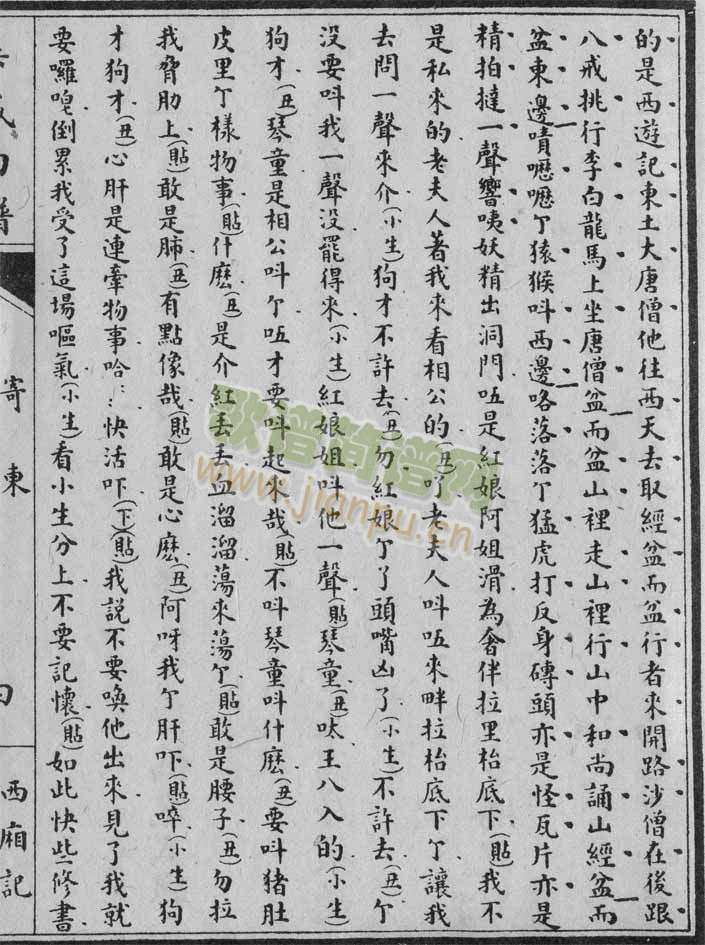 的是西遊記東土大唐僧他往西天去取經盆而盆行者來開路沙僧在後跟
八戒挑行李白龍馬上坐唐僧盆而盆山裡走山裡行山中和尚誦山經盆而
盆東邊嘖嚦嚦丫猿猴呌西邊咯落落丫猛虎打反身磚頭亦是怪瓦片亦是
精拍撻一聲響咦妖精出洞門哑是紅娘阿姐滑為奢伴拉里枱底下(貼)我不
是私來的老夫人著我來看相公的(丑)吖老夫人呌哑來畔拉枱底下丫讓我
去問一聲來介(小生)狗才不許去(丑)勿紅娘丫了頭嘴凶了(小生)不許去(丑)丫
沒要呌我一聲沒罷得來(小生)紅娘姐呌他一聲(貼)琴童(丑)呔王八入的(小生)
狗才(丑)琴童是相公呌丫哑才要呌起來哉(貼)不呌琴童呌什麽(丑)要呌猪肚
皮里丫樣物事(貼)什麽(丑)是介紅丢丢血溜溜蕩來蕩丫(貼)敢是腰子(丑)勿拉
我脅肋上(貼)敢是肺(丑)有點像哉(貼)敢是心麽(丑)阿呀我丫肝吓(貼)啐(小生)狗
才狗才(丑)心肝是連牽物事哈⋮快活吓(下)(貼)我説不要喚他出來見了我就
要囉唣倒累我受了這場嘔氣(小生)看小生分上不要記懷(貼)如此快些修書
寄柬
西廂記
歌谱简谱网
www.jianpu.cn